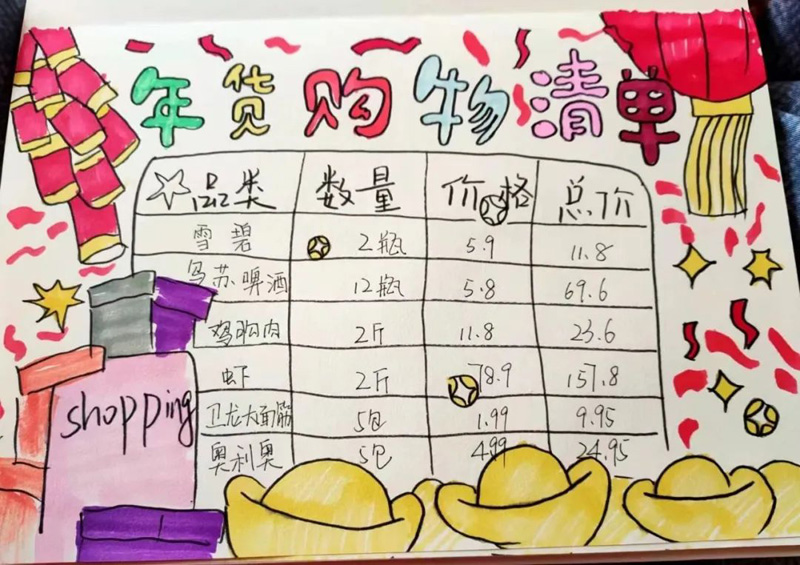 年货购物清单
品类 数量 价格 总价
雪碧 2瓶 5.9 11.8
乌苏啤酒 12瓶 5.8 69.6
鸡胸肉 2斤 11.8 23.6
虾 2斤 78.9 157.8
卫龙大面筋 5包 1.99 9.95
奥利奥 5包 4.99 24.95
shopping